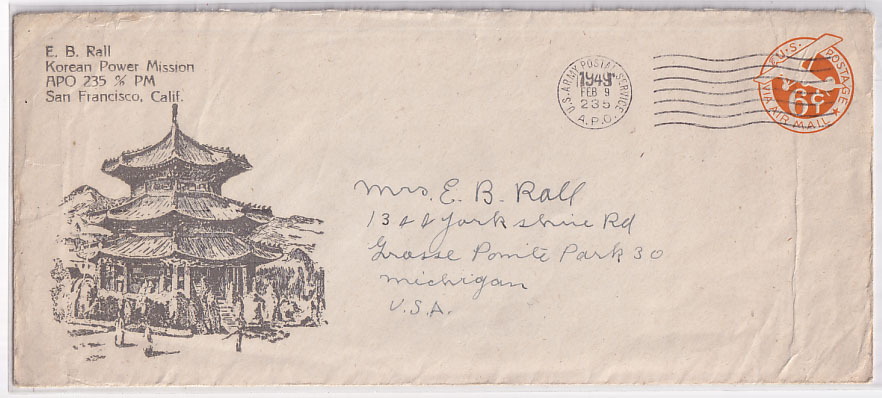 E. B. Rall
Korean Power Mission
APO 235 % PM
San Francisco, Calif.
U.S. ARMY POSTAL SERVICE
1949
FEB 9
235
A.P.O.
U.S. POSTAGE
6¢
VIA AIR MAIL
Mrs. E. B. Rall
1344 Yorkshire Rd
Grosse Pointe Park 30
Michigan
U.S.A.